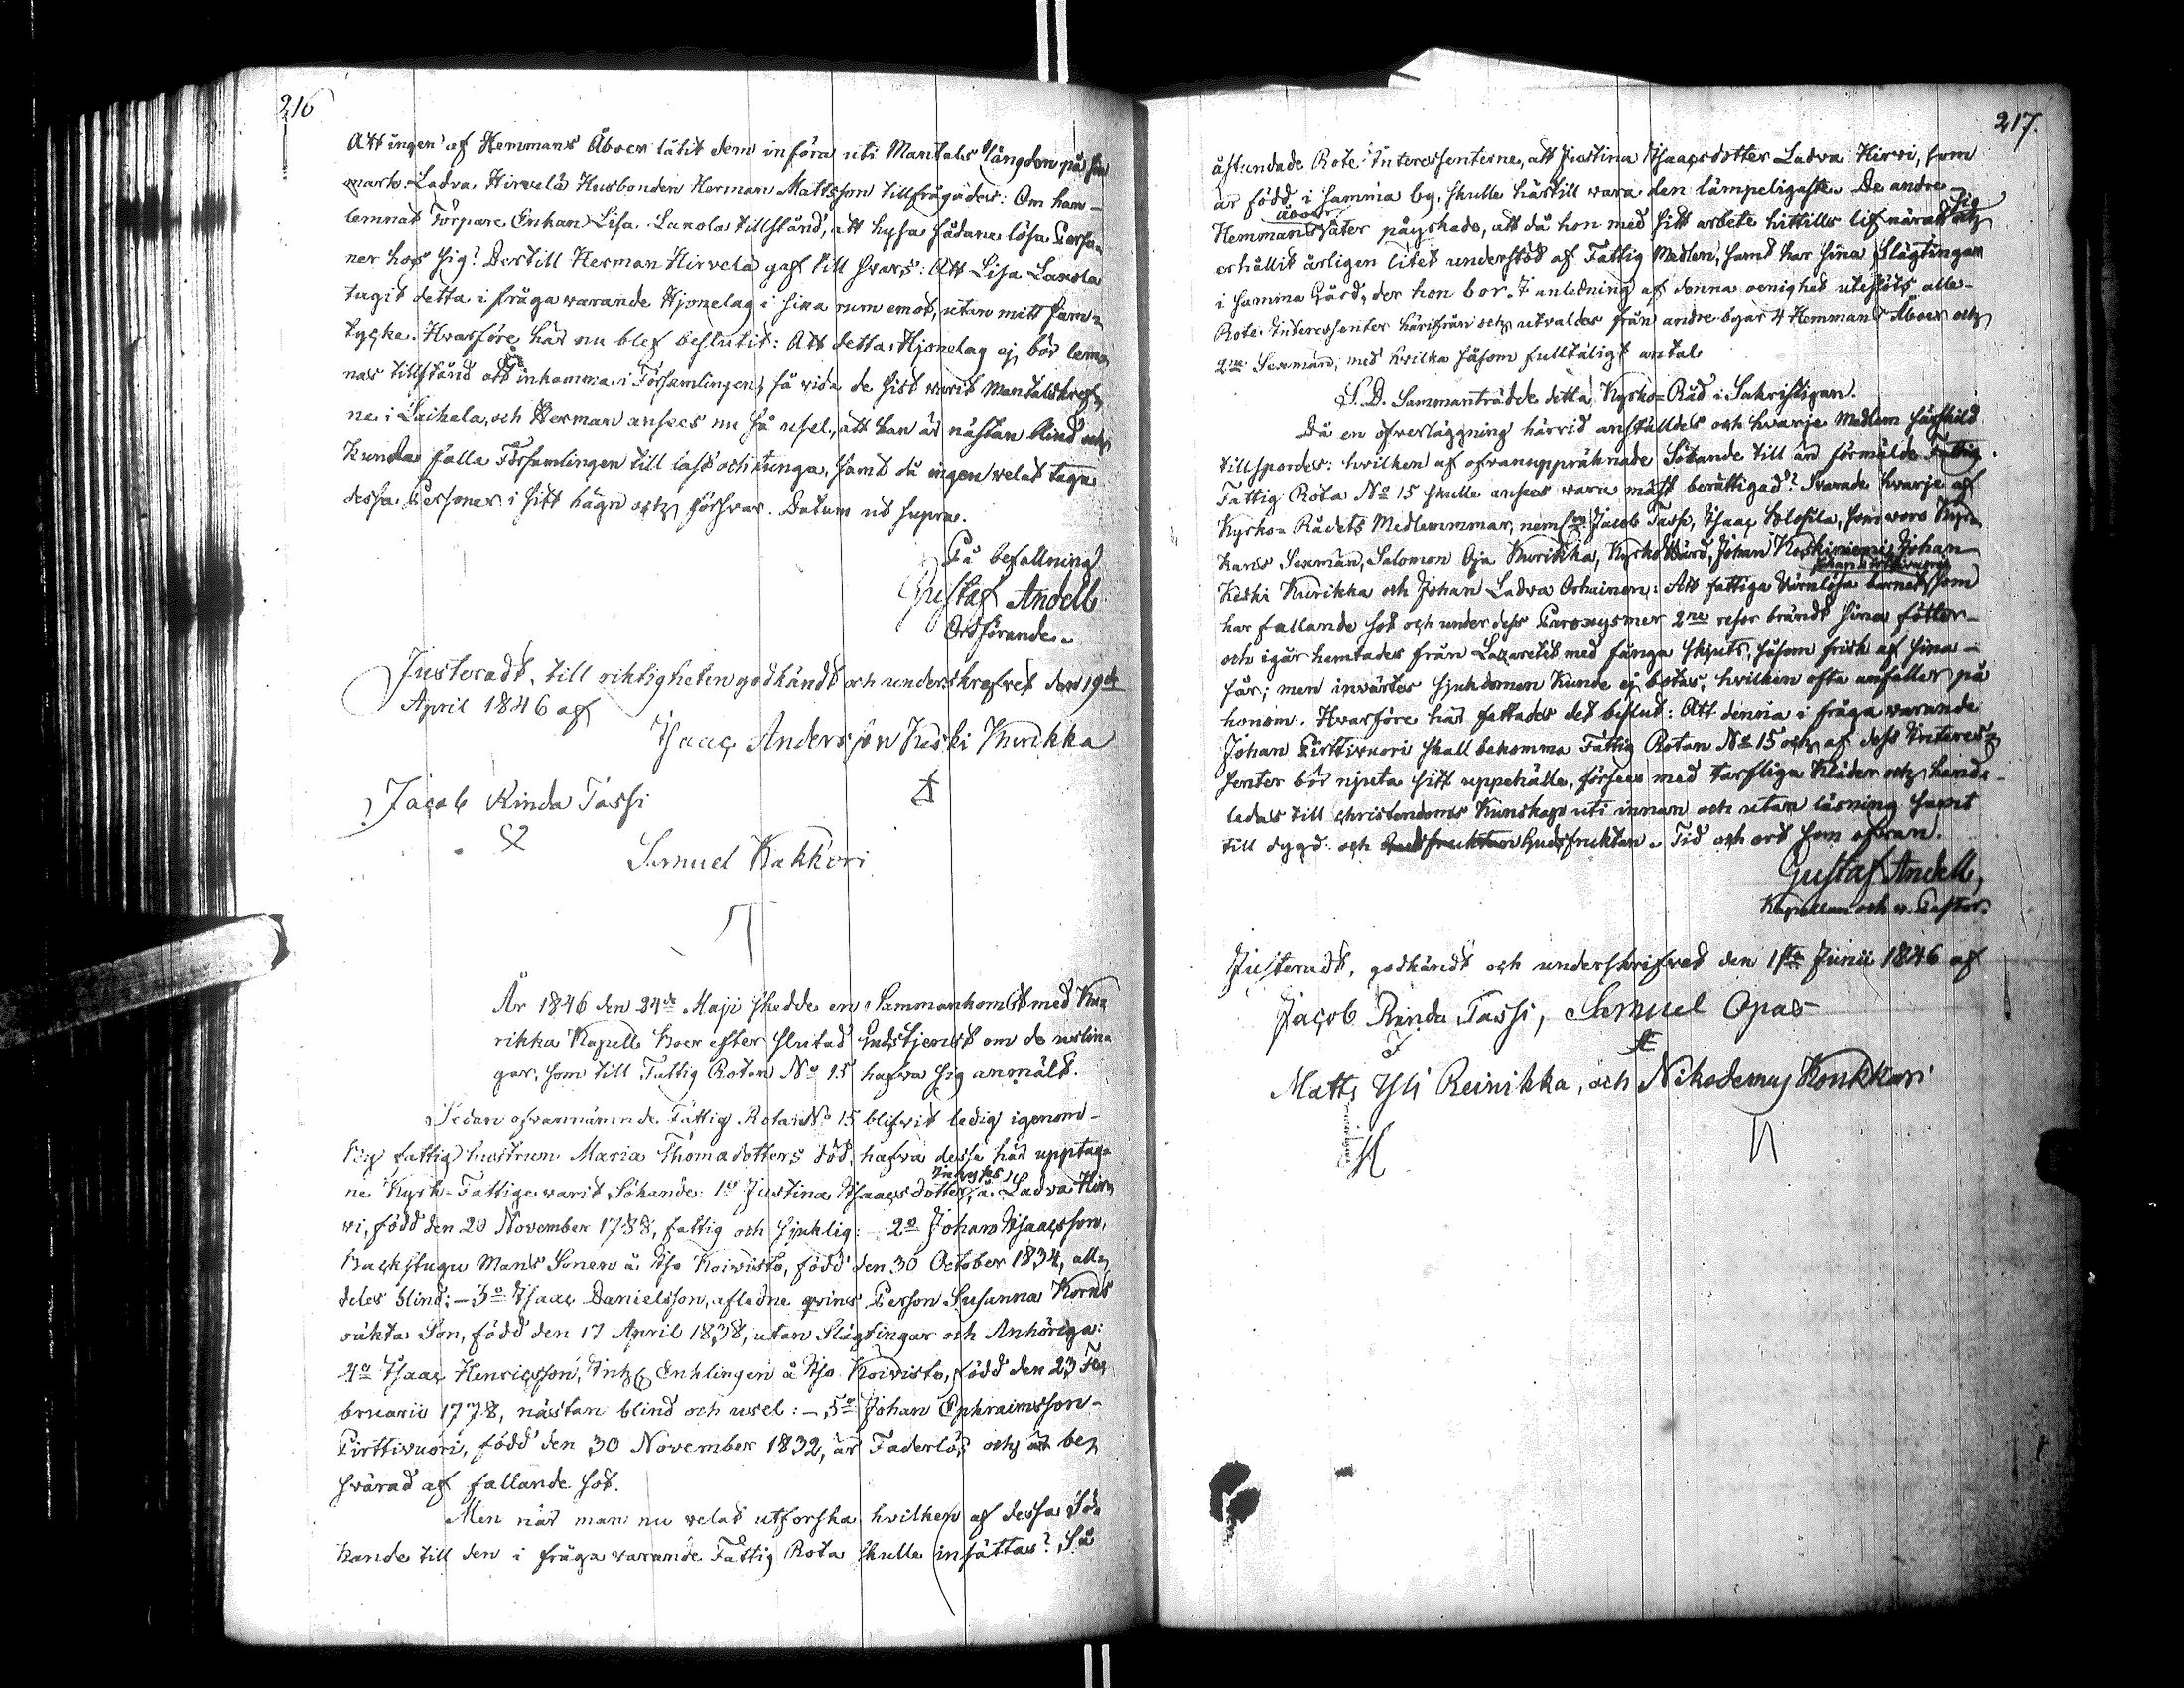 216
Att ingen af Hemmans Åboer låtit dem införa uti Mantals Längden på sin
mark. Ladva Hirvelä Husbonden Herman Mattsson tillfrågades: Om han
lemnat Torpare Enkan Lisa Lanola tillstånd, att hysa sådana lösa Perso-
ner hos sig? Dertill Herman Hirvelä gaf till svars: Att Lisa Lanola
tagit detta i fråga warande Hjonelag i sina rum emot, utan mitt sam-
tycke. Hvarföre här nu blef beslutit: Att detta Hjonelag ej bör lem-
nas tillstånd att inkomma i Församlingen, så vida de sist warit Mantalskref-
ne i Laihela, och Herman ansees nu så usel, att han är nästan blind och
kunde falla Församlingen till last och tunga, samt då ingen welat taga
dessa Personer i sitt hägn och försvar. Datum ut supra.
På befallning
Gustaf Andell
Ordförande.
Justeradt, till riktigheten godkändt och underskrefvet den 19de
April 1846 af
Isaac Andersson Keski Kurikka
Jacob Rinda Tassi
Samuel Kakkori
År 1846 den 24de Maji skedde en Sammankomst med Ku-
rikka Kapell boer efter slutad Gudstjenst om de uslin-
gar, som till Fattig Rotan No 15 hafva sig anmält.
Sedan ofvannämnde Fattig Rotan No 15 blifvit ledig igenom
fattig hustrun Maria Thomasdotters död, hafva dessa här upptag-
ne Kyrk-Fattige warit Sökande: 1o Justina Isaacsdotter, å Ladva Hir-
vi, född den 20 November 1788, fattig och sjuklig: 2o Johan Isaacsson,
Backstugu Mans Sonen å Iso Koivisto, född den 30 October 1834, all-
deles blind: – 3o Isaac Danielsson, aflidne qvins Person Susanna Korns
oäkta Son, född den 17 April 1838, utan Slägtingar och Anhöriga:
4o Isaac Henricsson, Enklingen å Iso Koivisto, född den 23 Fe-
bruarii 1778, nästan blind och usel: – 5o Johan Ephraimsson
Pirttivuori, född den 30 November 1832, är Faderlös och är be-
svärad af fallande sot.
Men när man nu velat utforska hvilken af dessa Sö-
kande till den i fråga warande Fattig Rota skulle insättas? Så
217.
åstundade Rote Interessenterne, att Justina Isaacsdotter Ladva Hirvi, som
är född i samma by, skulle härtill wara den lämpeligaste. De andre
Åboer sig
Hemmans åter påyrkade, att då hon med sitt arbete hittills lifnärat och
erhållit årligen litet understöd af Fattig Medlen, samt har sina Slägtingar
i samma Gård, der hon bor. I anledning af denna oenighet uteslöts alle
Rote Interessenter härifrån och utvaldes från andre byar 4 Hemmans Åboer och
2ne Sexmän, med hvilka såsom fulltaligt antal
S.D. Sammanträdde detta Kyrko-Råd i Sakristigan.
Då en öfverläggning härvid anställdes och hvarje Medlem särskild
tillspordes: hvilken af ofvanuppräknade Sökande till än förmälde Fattig
Fattig Rota No 15 skulle ansees wara mäst berättigad? Svarade hvarje af
Kyrko-Rådets Medlemmar, Jacob Tassi, Isaac som woro Kyr-
kans Sexmän, Salomon Oja Kurikka, Kyrko Wärd, Johan Koskiniemi, Johan
Johan Pirttivuori
Keski Kurikka och Johan Ladva Orhainen: Att fattiga barnet, som
har fallande sot och under dess Paroxysmer 2ne resor brändt sina fötter
och igår hemtades från Lazarettet med fånga skjuts, såsom frisk af sina
sår; men invärtes sjukdomen kunde ej botas, hvilken ofta anfaller på
honom. Hvarföre här fattades det beslut: Att denna i fråga warande
Johan Pirttivuori skall bekomma Fattig Rotan No 15 och af dess Interes-
senter bör njuta sitt uppehälle, förses med tarfliga kläder och hand-
ledas till christendoms kunskap uti innan och utan läsning samt
till dygd och Gudsfruktan Gudsfruktan. Tid och ort som ofvan.
Gustaf Andell,
Kapellan och v. Pastor.
Justeradt, godkändt och underskrifvet den 1sta Junii 1846 af
Jacob Rinda Tassi, Samuel Opas
Matts Yli Reinikka, och Nikodemus Konkkari